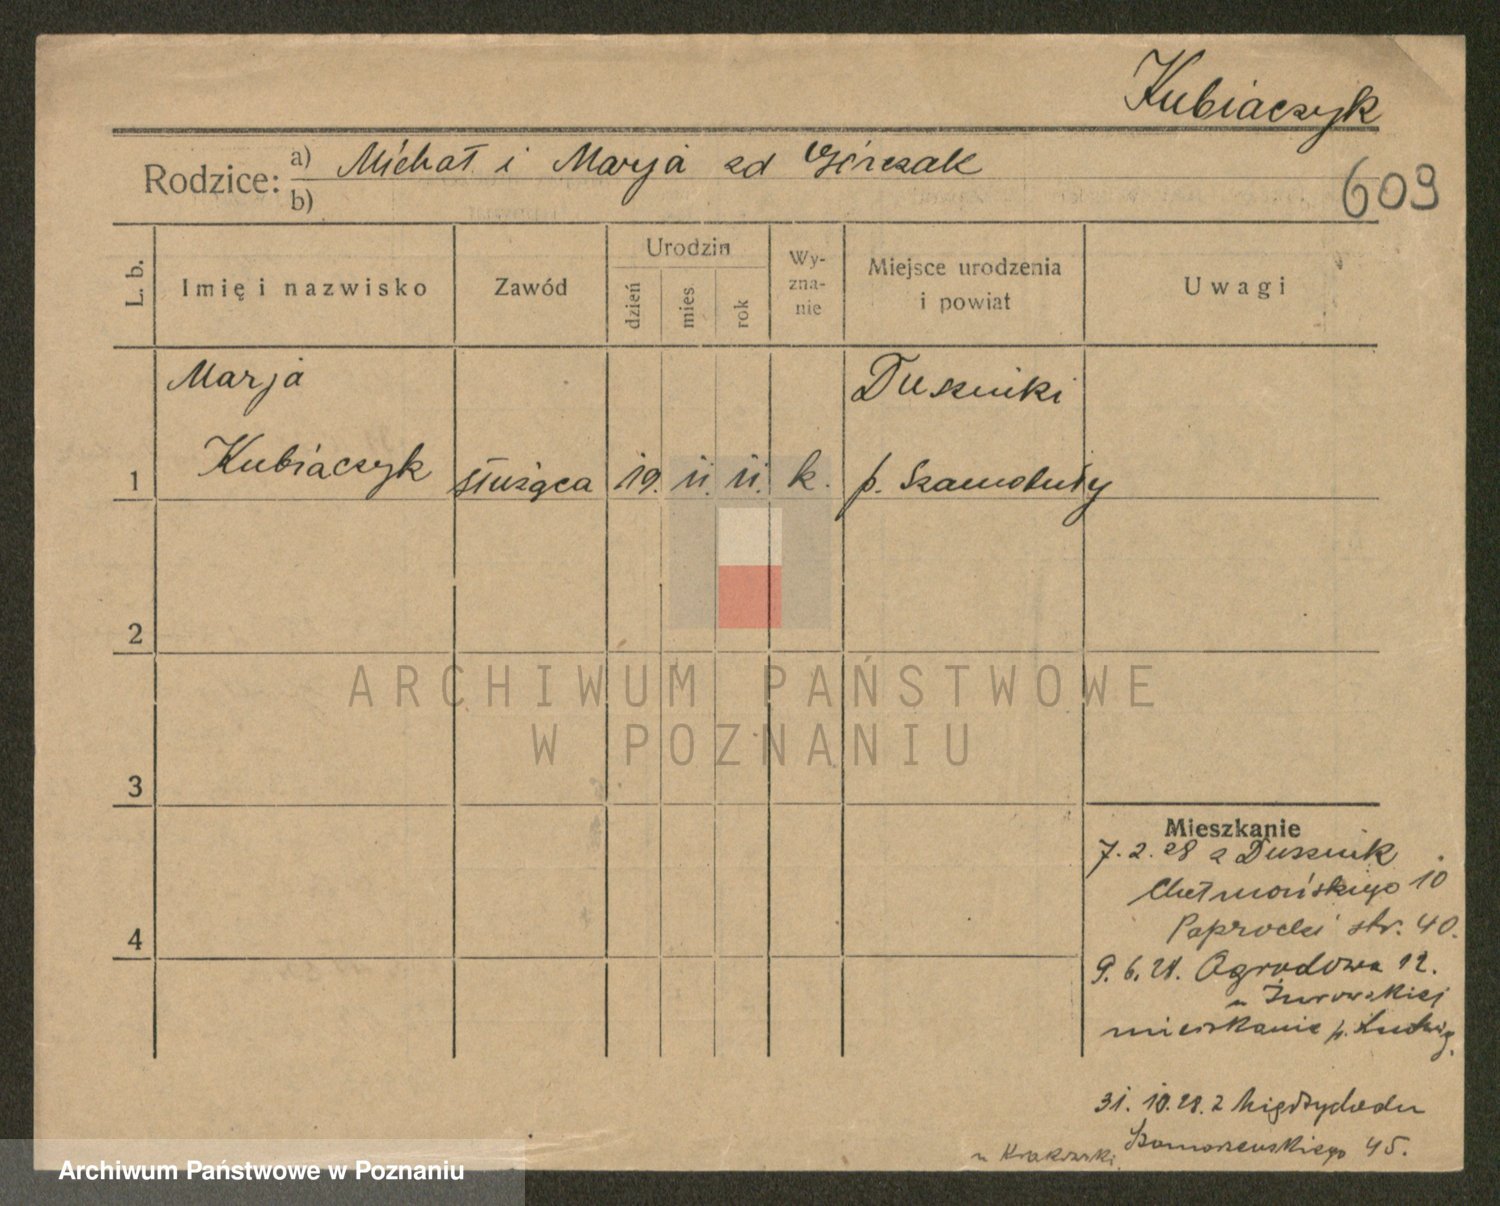 Kubiaczyk
Rodzice: a) Michał i Marja zd Górczak
b)
609
L. b.
Imię i nazwisko
Zawód
Urodzin
dzień
mies
rok
Wy-
zna-
nie
Miejsce urodzenia
i powiat
Uwagi
Marja
Duszniki
1 Kubiaczyk służąca 19. 11. 11. k. p. Szamotuły
2
ARCHIWUM PAŃSTWOWE
W POZNANIU
3
Mieszkanie
7. 2. 28 z Dusznik
Chełmońskiego 10
Paprocki str. 40.
4
9. 6. 28. Ogrodowa 12.
u Żurowskiej
mieszkanie p. Ludwig.
31. 10. 28. z Międzychodu
Szamarzewskiego 45.
u Krakowski
Archiwum Państwowe w Poznaniu